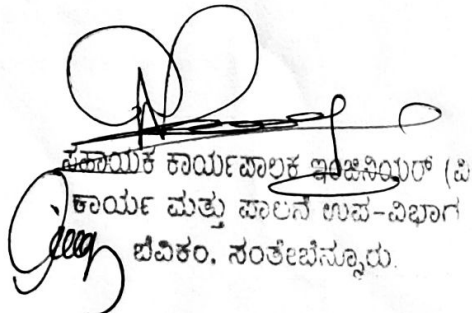 ಸಹಾಯಕ ಕಾರ್ಯಪಾಲಕ ಇಂಜಿನಿಯರ್ (ವಿ
ಕಾರ್ಯ ಮತ್ತು ಪಾಲನೆ ಉಪ-ವಿಭಾಗ
ಬೆವಿಕಂ. ಸಂತೇಬೆನ್ನೂರು.